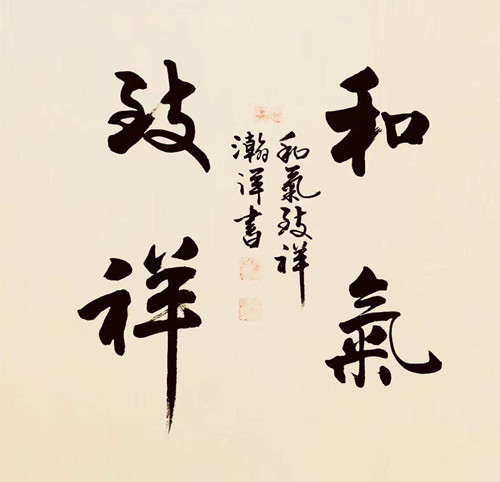 和氣
致祥
和氣致祥
瀚祥書